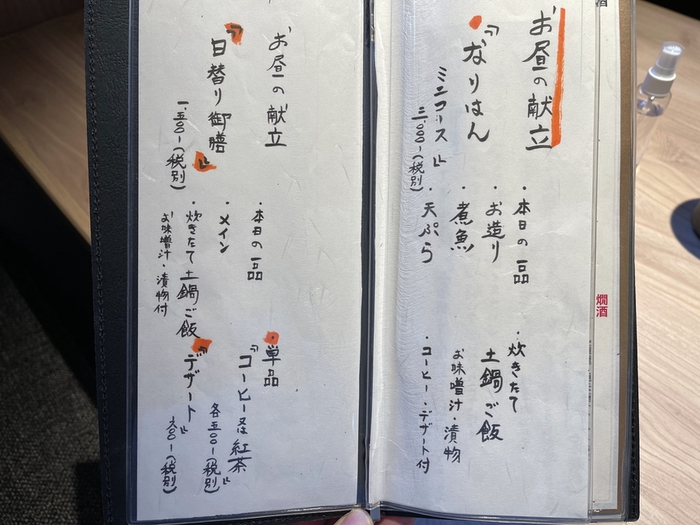 お昼の献立
『なりはん
ミニコース』
三、〇〇〇-(税別)
・本日の一品
・お造り
・煮魚
・天ぷら
・炊きたて
土鍋ご飯
お味噌汁・漬物
・コーヒー・デザート付
お昼の献立
『日替り御膳』
一、五〇〇-(税別)
・本日の一品
・メイン
・炊きたて土鍋ご飯
お味噌汁・漬物付
・単品
『コーヒー又は紅茶』
各五〇〇-(税別)
『デザート』
六〇〇-(税別)
燗酒
酒